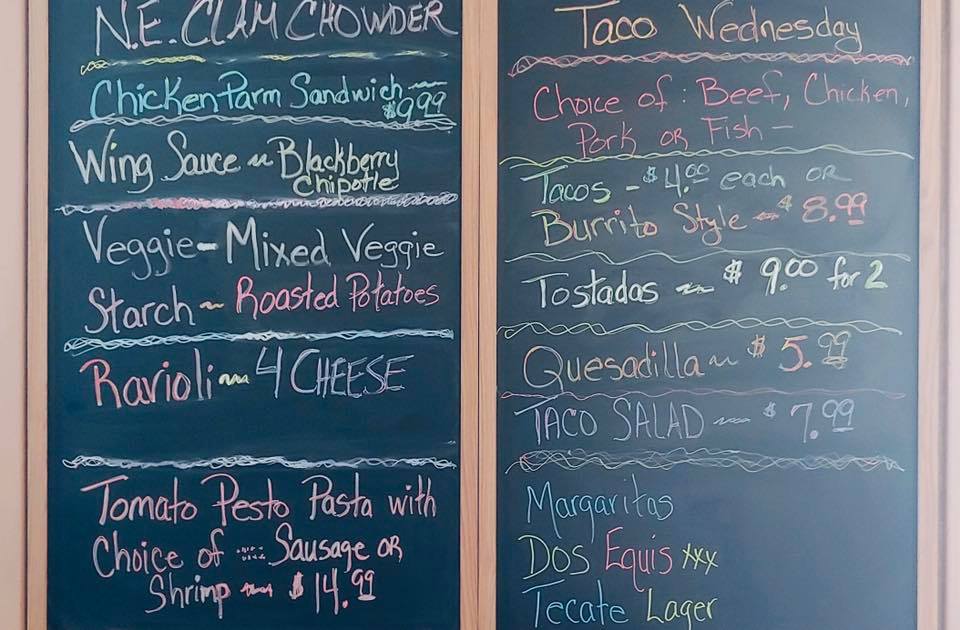 N.E. CLAM CHOWDER
Chicken Parm Sandwich
$9.99
Wing Sauce ~ Blackberry
Chipotle
Veggie - Mixed Veggie
Starch ~ Roasted Potatoes
Ravioli ~ 4 CHEESE
Tomato Pesto Pasta with
Choice of ... Sausage OR
Shrimp ~ $14.99
Taco Wednesday
Choice of : Beef, Chicken,
Pork OR Fish -
Tacos - $4.00 each OR
Burrito Style ~ $8.99
Tostadas ~ $9.00 for 2
Quesadilla ~ $5.99
TACO SALAD ~ $7.99
Margaritas
Dos Equis xxx
Tecate Lager